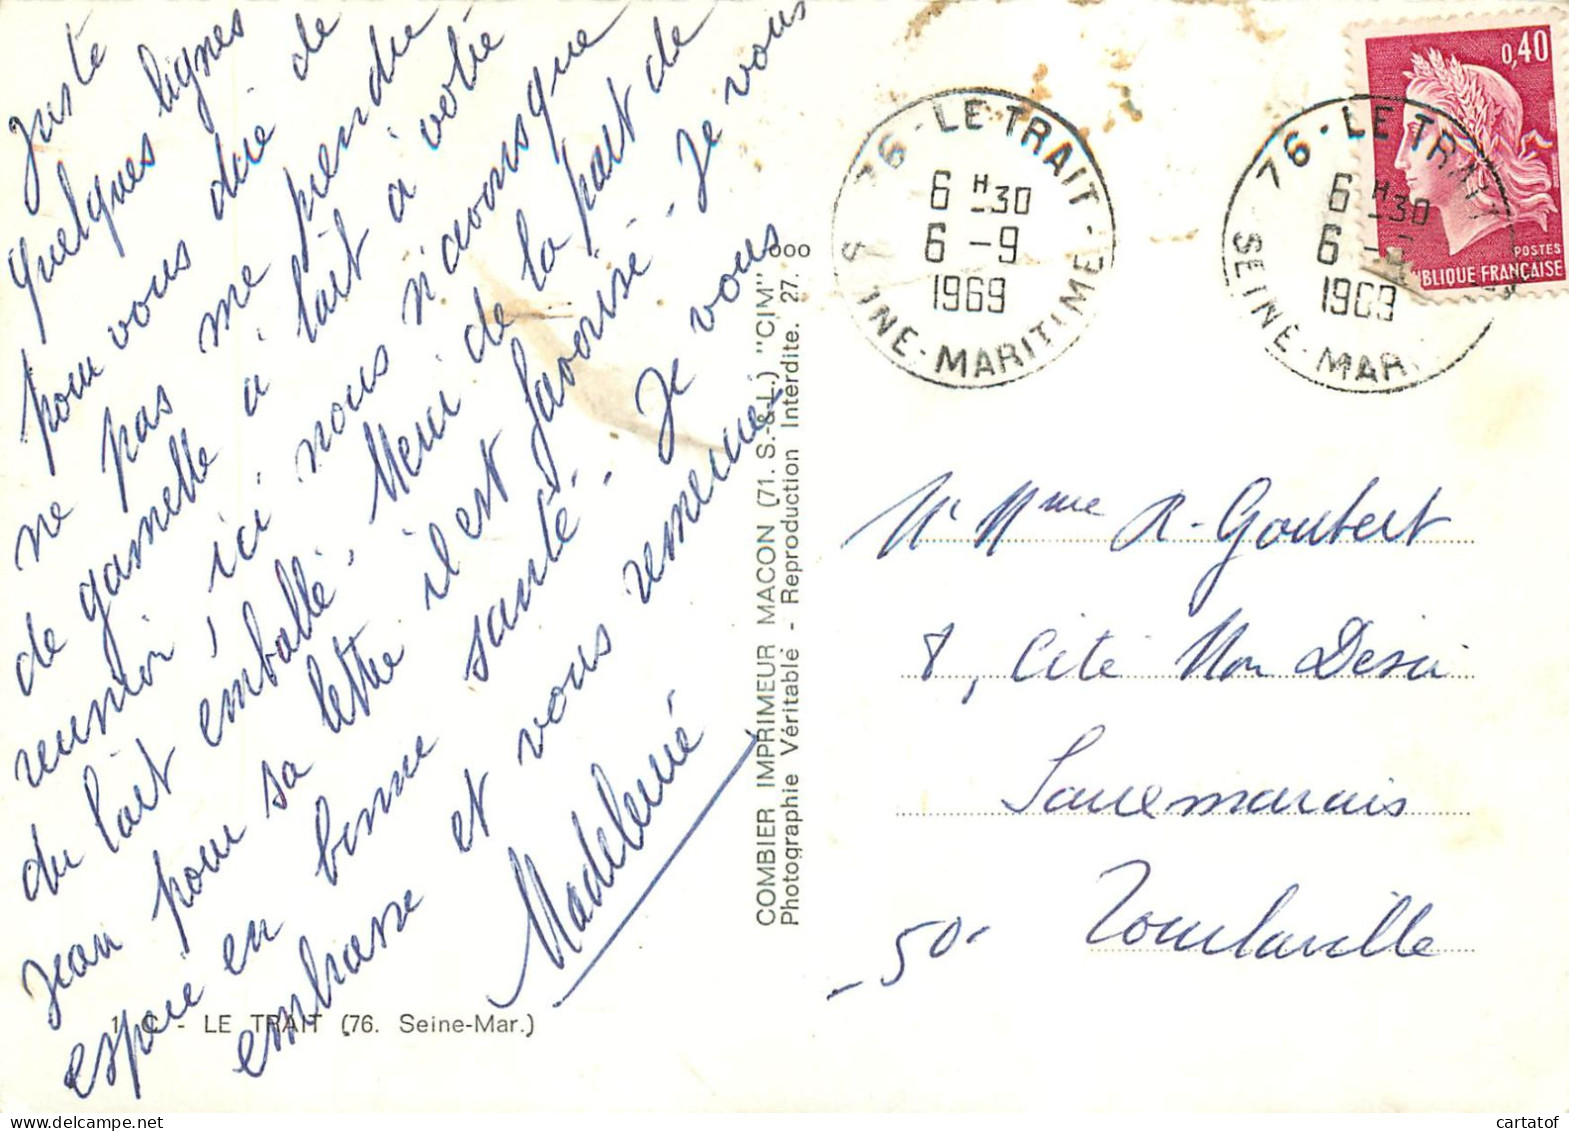 Juste
quelques lignes
pour vous dire de
ne pas me prendre
de gamelle à lait à votre
reunion, ici nous n'avons que
du lait emballé. Merci de la part de
Jean pour sa lettre il est favorisé. Je vous
espère en bonne santé. Je vous
embrasse et vous remercie.
Madeleine
1 C - LE TRAIT (76. Seine-Mar.)
COMBIER IMPRIMEUR MACON (71. S.-&-L.) "CIM"
Photographie Véritable - Reproduction Interdite. 27. 000
76 - LE TRAIT -
6 H 30
6 - 9
1969
SEINE - MARITIME
76 - LE TRAIT
6 H 30
6 -
1969
SEINE - MAR.
0,40
POSTES
BLIQUE FRANÇAISE
Mr Mme R. Goubert
8, Cité Mon Desir
Sauxmarais
50 Tourlaville
cartatof